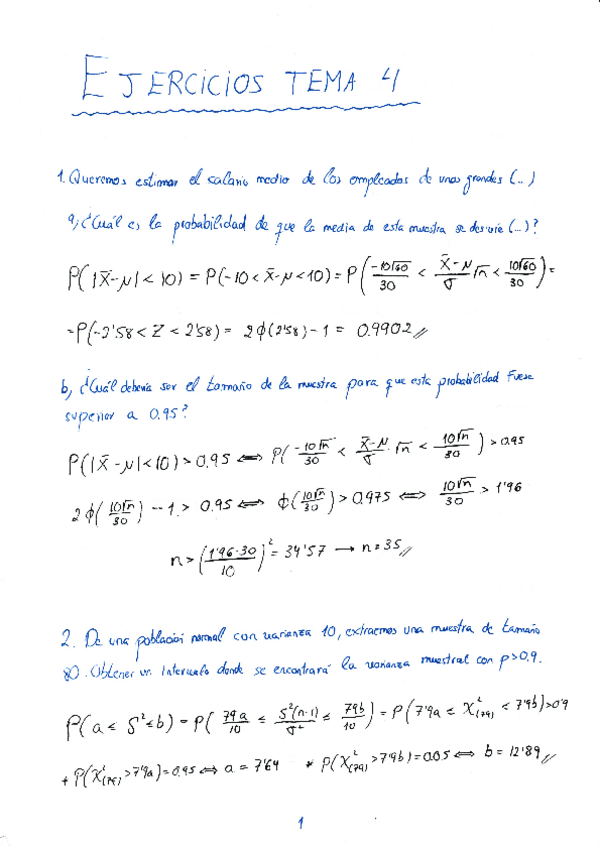 EJERCICIOS TEMA 4
1. Queremos estimar el salario medio de los empleados de unas grandes (...)
a, ¿Cuál es la probabilidad de que la media de esta muestra se desvíe (...)?
P(|X̄-μ|<10) = P(-10<X̄-μ<10) = P(-10√60/30 < X̄-μ/σ √n < 10√60/30) =
= P(-2'58 < Z < 2'58) = 2ϕ(2'58) - 1 = 0.9902 //
b, ¿Cuál debería ser el tamaño de la muestra para que esta probabilidad fuese
superior a 0.95?
P(|X̄-μ|<10) > 0.95 ⟺ P(-10√n/30 < X̄-μ/σ · √n < 10√n/30) > 0.95
2ϕ(10√n/30) - 1 > 0.95 ⟺ ϕ(10√n/30) > 0.975 ⟺ 10√n/30 > 1'96
n > (1'96·30/10)² = 34'57 → n = 35 //
2. De una población normal con varianza 10, extraemos una muestra de tamaño
80. Obtener un intervalo donde se encontrará la varianza muestral con p>0.9.
P(a ≤ S² ≤ b) = P(79a/10 ≤ S²(n-1)/σ² ≤ 79b/10) = P(7'9a ≤ X²(79) < 7'9b) > 0'9
* P(X²(79) > 7'9a) = 0.95 ⟺ a = 7'64 * P(X²(79) > 7'9b) = 0.05 ⟺ b = 12'89 //
1